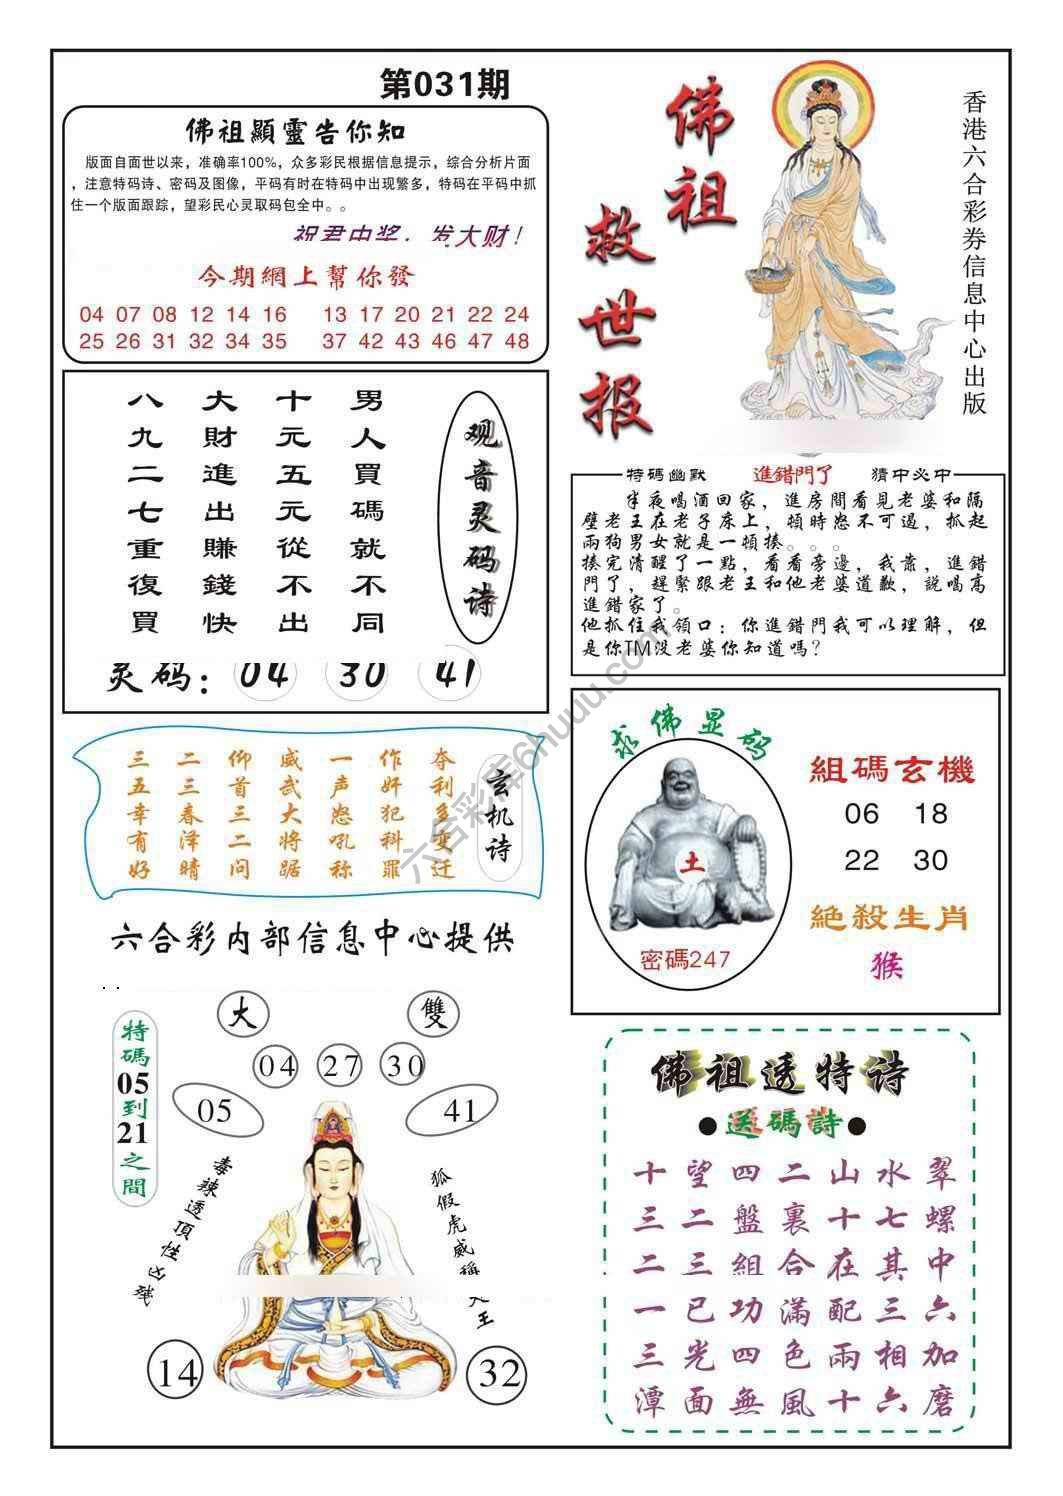 第031期
佛祖顯靈告你知
版面自面世以来，准确率100%，众多彩民根据信息提示，综合分析片面
，注意特码诗、密码及图像，平码有时在特码中出现繁多，特码在平码中抓
住一个版面跟踪，望彩民心灵取码包全中。。
祝君中奖，发大财！
今期網上幫你發
04 07 08 12 14 16 13 17 20 21 22 24
25 26 31 32 34 35 37 42 43 46 47 48
佛祖
救世报
香港六合彩券信息中心出版
观音灵码诗
男人買碼就不同
十元五元從不出
大財進出賺錢快
八九二七重復買
灵码：04 30 41
特碼幽默 進錯門了 猜中必中
半夜喝酒回家，進房間看見老婆和隔
壁老王在老子床上，頓時怒不可遏，抓起
兩狗男女就是一頓揍。。。
揍完清醒了一點，看看旁邊，我靠，進錯
門了，趕緊跟老王和他老婆道歉，説喝高
進錯家了。
他抓住我領口：你進錯門我可以理解，但
是你TM没老婆你知道嗎？
玄机诗
夺利多变迁
作奸犯科罪
一声怒吼称
威武大将踞
仰首三二问
二三春泽晴
三五幸有好
六合彩库6huuu.com
求佛显码
土
密碼247
組碼玄機
06 18
22 30
絶殺生肖
猴
六合彩内部信息中心提供
特碼05到21之間
大 雙
04 27 30
05 41
毒辣透頂性凶残
狐假虎威稱王
14 32
佛祖透特诗
●送碼詩●
十望四二山水翠
三二盤裏十七螺
二三組合在其中
一已功滿配三六
三光四色兩相加
潭面無風十六磨